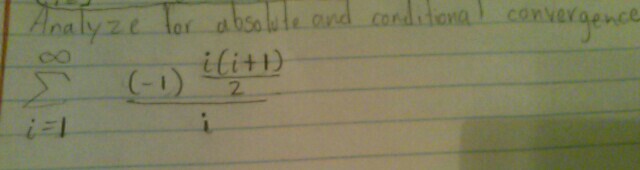 Analyze for absolute and conditional convergence
∞
Σ (-1) i(i+1)/2
i=1 i